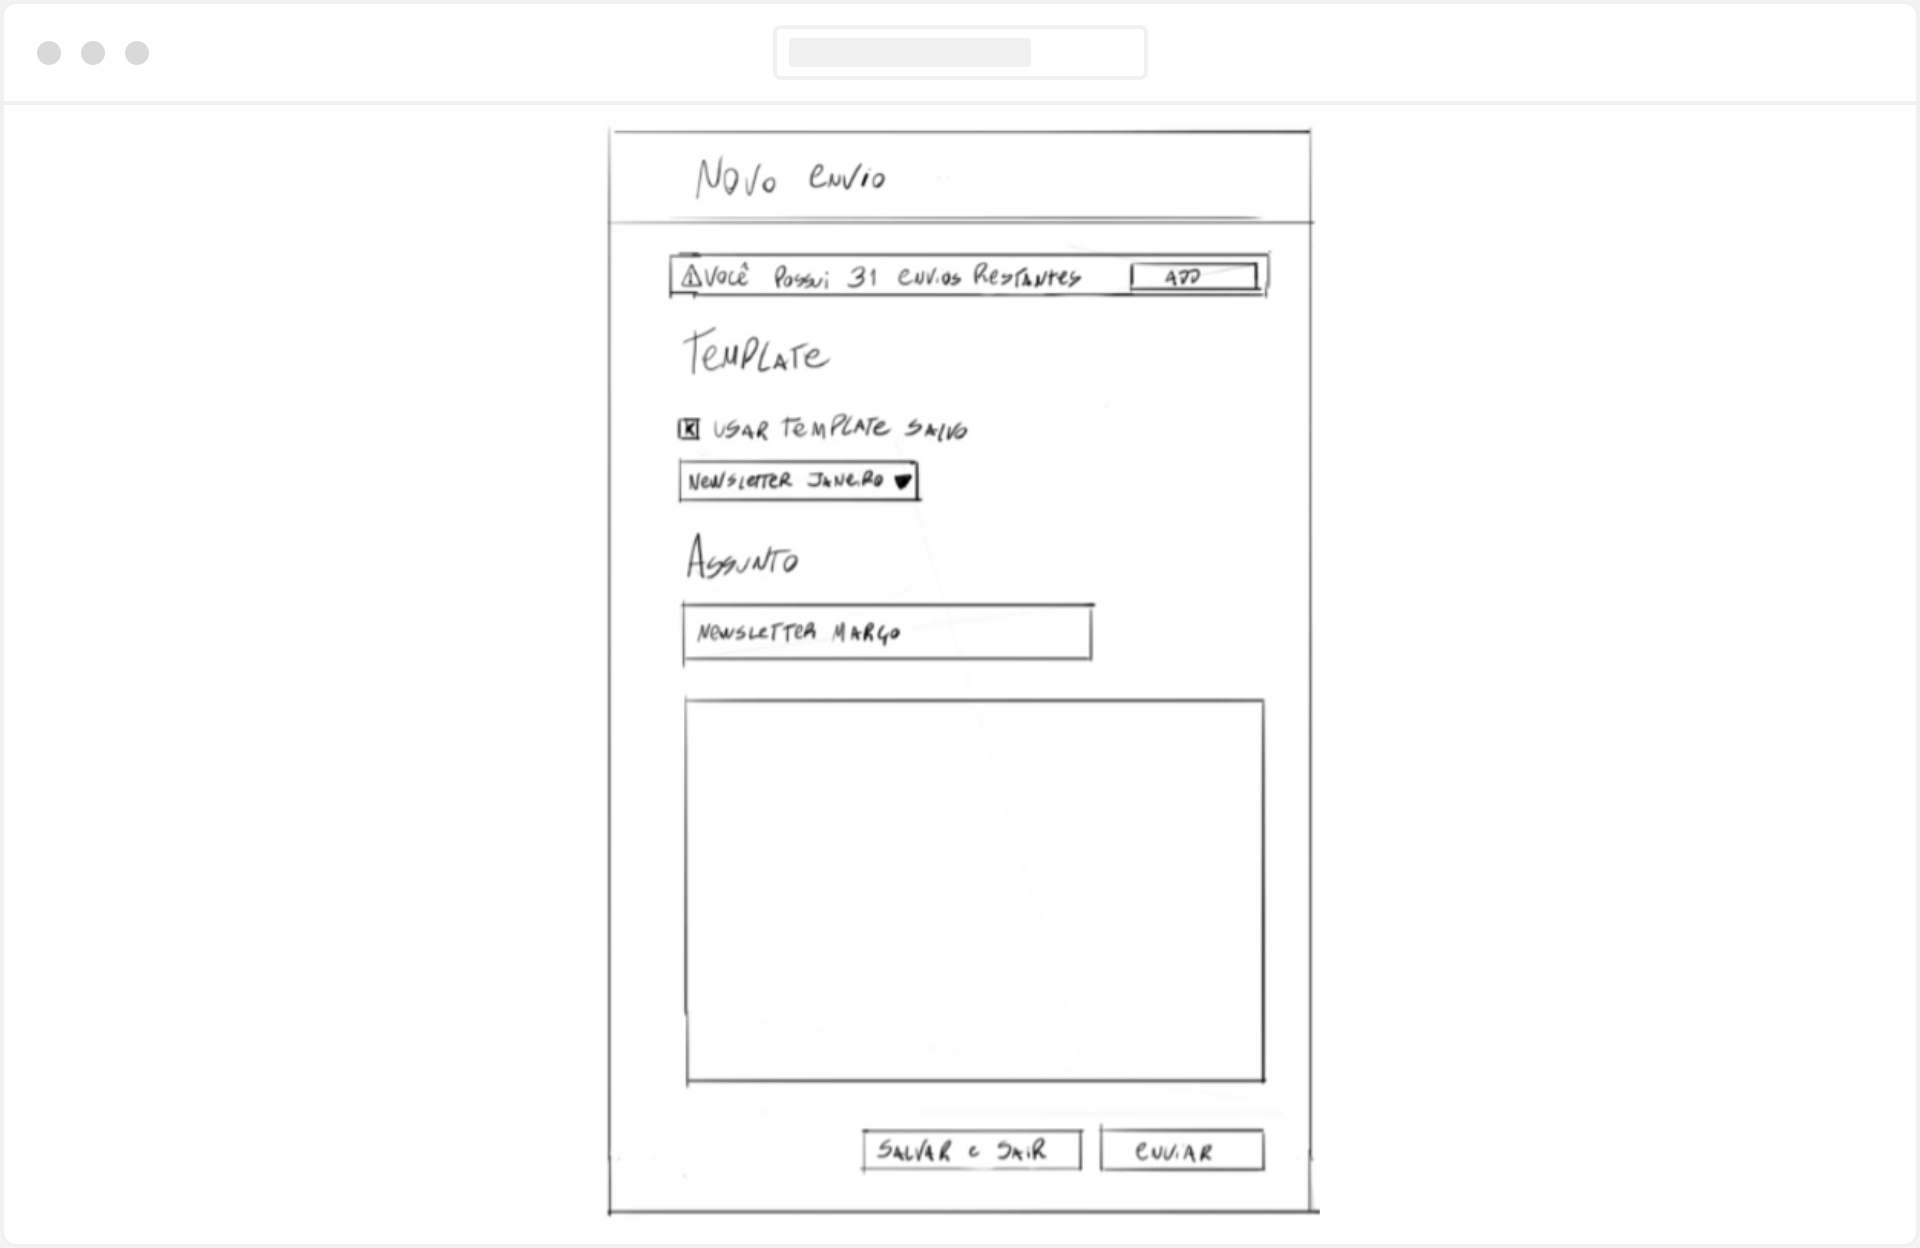 Novo envio
⚠ Você possui 31 envios restantes ADD
Template
☒ Usar template salvo
Newsletter Janeiro ▼
Assunto
Newsletter Março
Salvar e sair Enviar